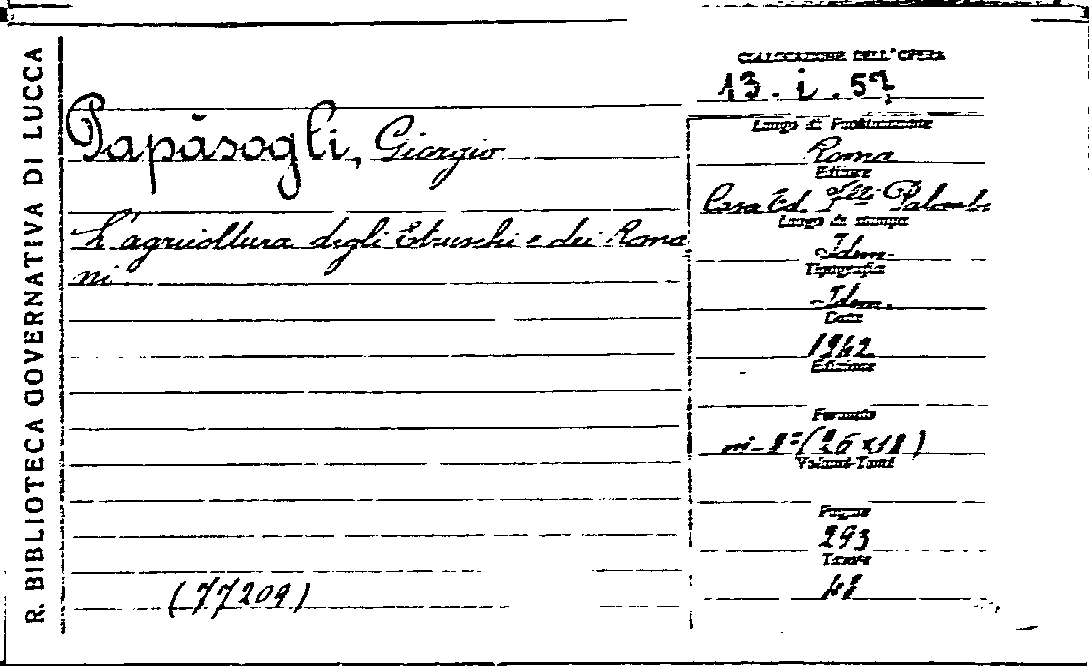 R. BIBLIOTECA GOVERNATIVA DI LUCCA
Papàsogli, Giorgio
L'agricoltura degli Etruschi e dei Roma
ni.
(77209)
COLLOCAZIONE DELL'OPERA
13. i. 57
Luogo di Pubblicazione
Roma
Editore
Casa Ed. F.lli Palombi
Luogo di stampa
Idem.
Tipografia
Idem.
Data
1942
Edizione
Formato
in-8° (26x18)
Volumi-Tomi
Pagine
293
Tavole